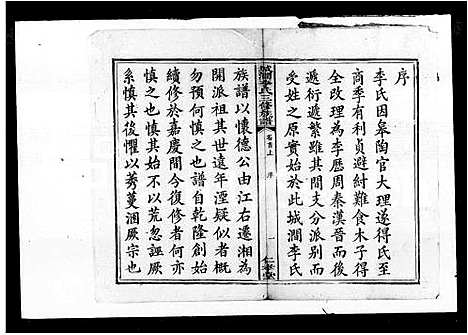 序
李氏因皋陶官大理遂得氏至
商季有利貞避紂難食木子得
全改理為李歷周秦漢晉而後
遞衍遞繁雖其間支分派別而
受姓之原實始於此城澗李氏
城澗李氏三修族譜
卷首上
序
一
仁孝堂
族譜以懷德公由江右遷湘為
開派祖其世遠年湮疑似者概
勿參預慎之也譜自乾隆創始
續修於嘉慶間今復修者何亦
慎之也慎始不以荒忽誣厥
系慎其後懼以莠蔓溷厥宗也